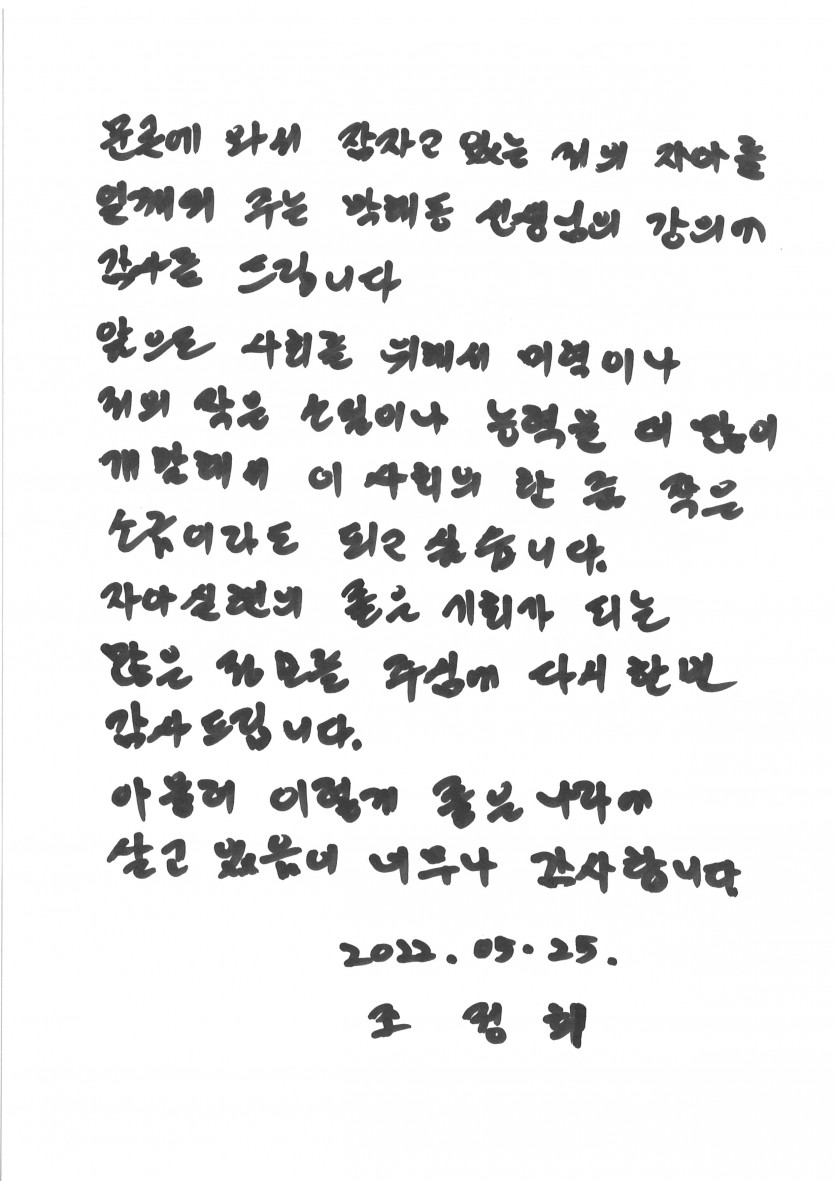 문굿에 와서 잠자고 있는 저의 자아를
일깨워 주는 박재동 선생님의 강의에
감사를 드립니다
앞으로 사회를 위해서 미력이나
저의 작은 소질이나 능력을 더 많이
개발해서 이 사회의 한 줌 작은
소금이라도 되고 싶습니다.
자아실현의 좋은 기회가 되는
많은 정보를 주심에 다시 한번
감사드립니다.
아울러 이렇게 좋은 나라에
살고 있음이 너무나 감사합니다
2022. 05. 25.
조 정 희